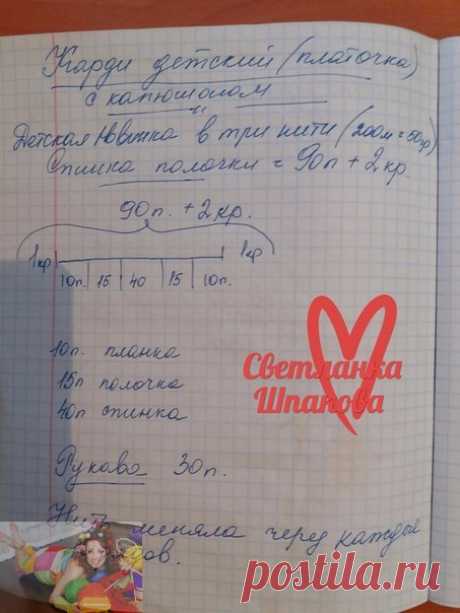 Карди детский (платочка)
с капюшоном
Детская Новинка в три нити (200м=50гр)
Спинка полочки = 90п + 2кр.
90п. + 2кр.
1кр 1кр
10п. 15 40 15 10п.
10п. планка
15п полочка
40п спинка
Светланка
Шпакова
Рукава 30п.
Нить меняла через каждые
ов.
postila.ru